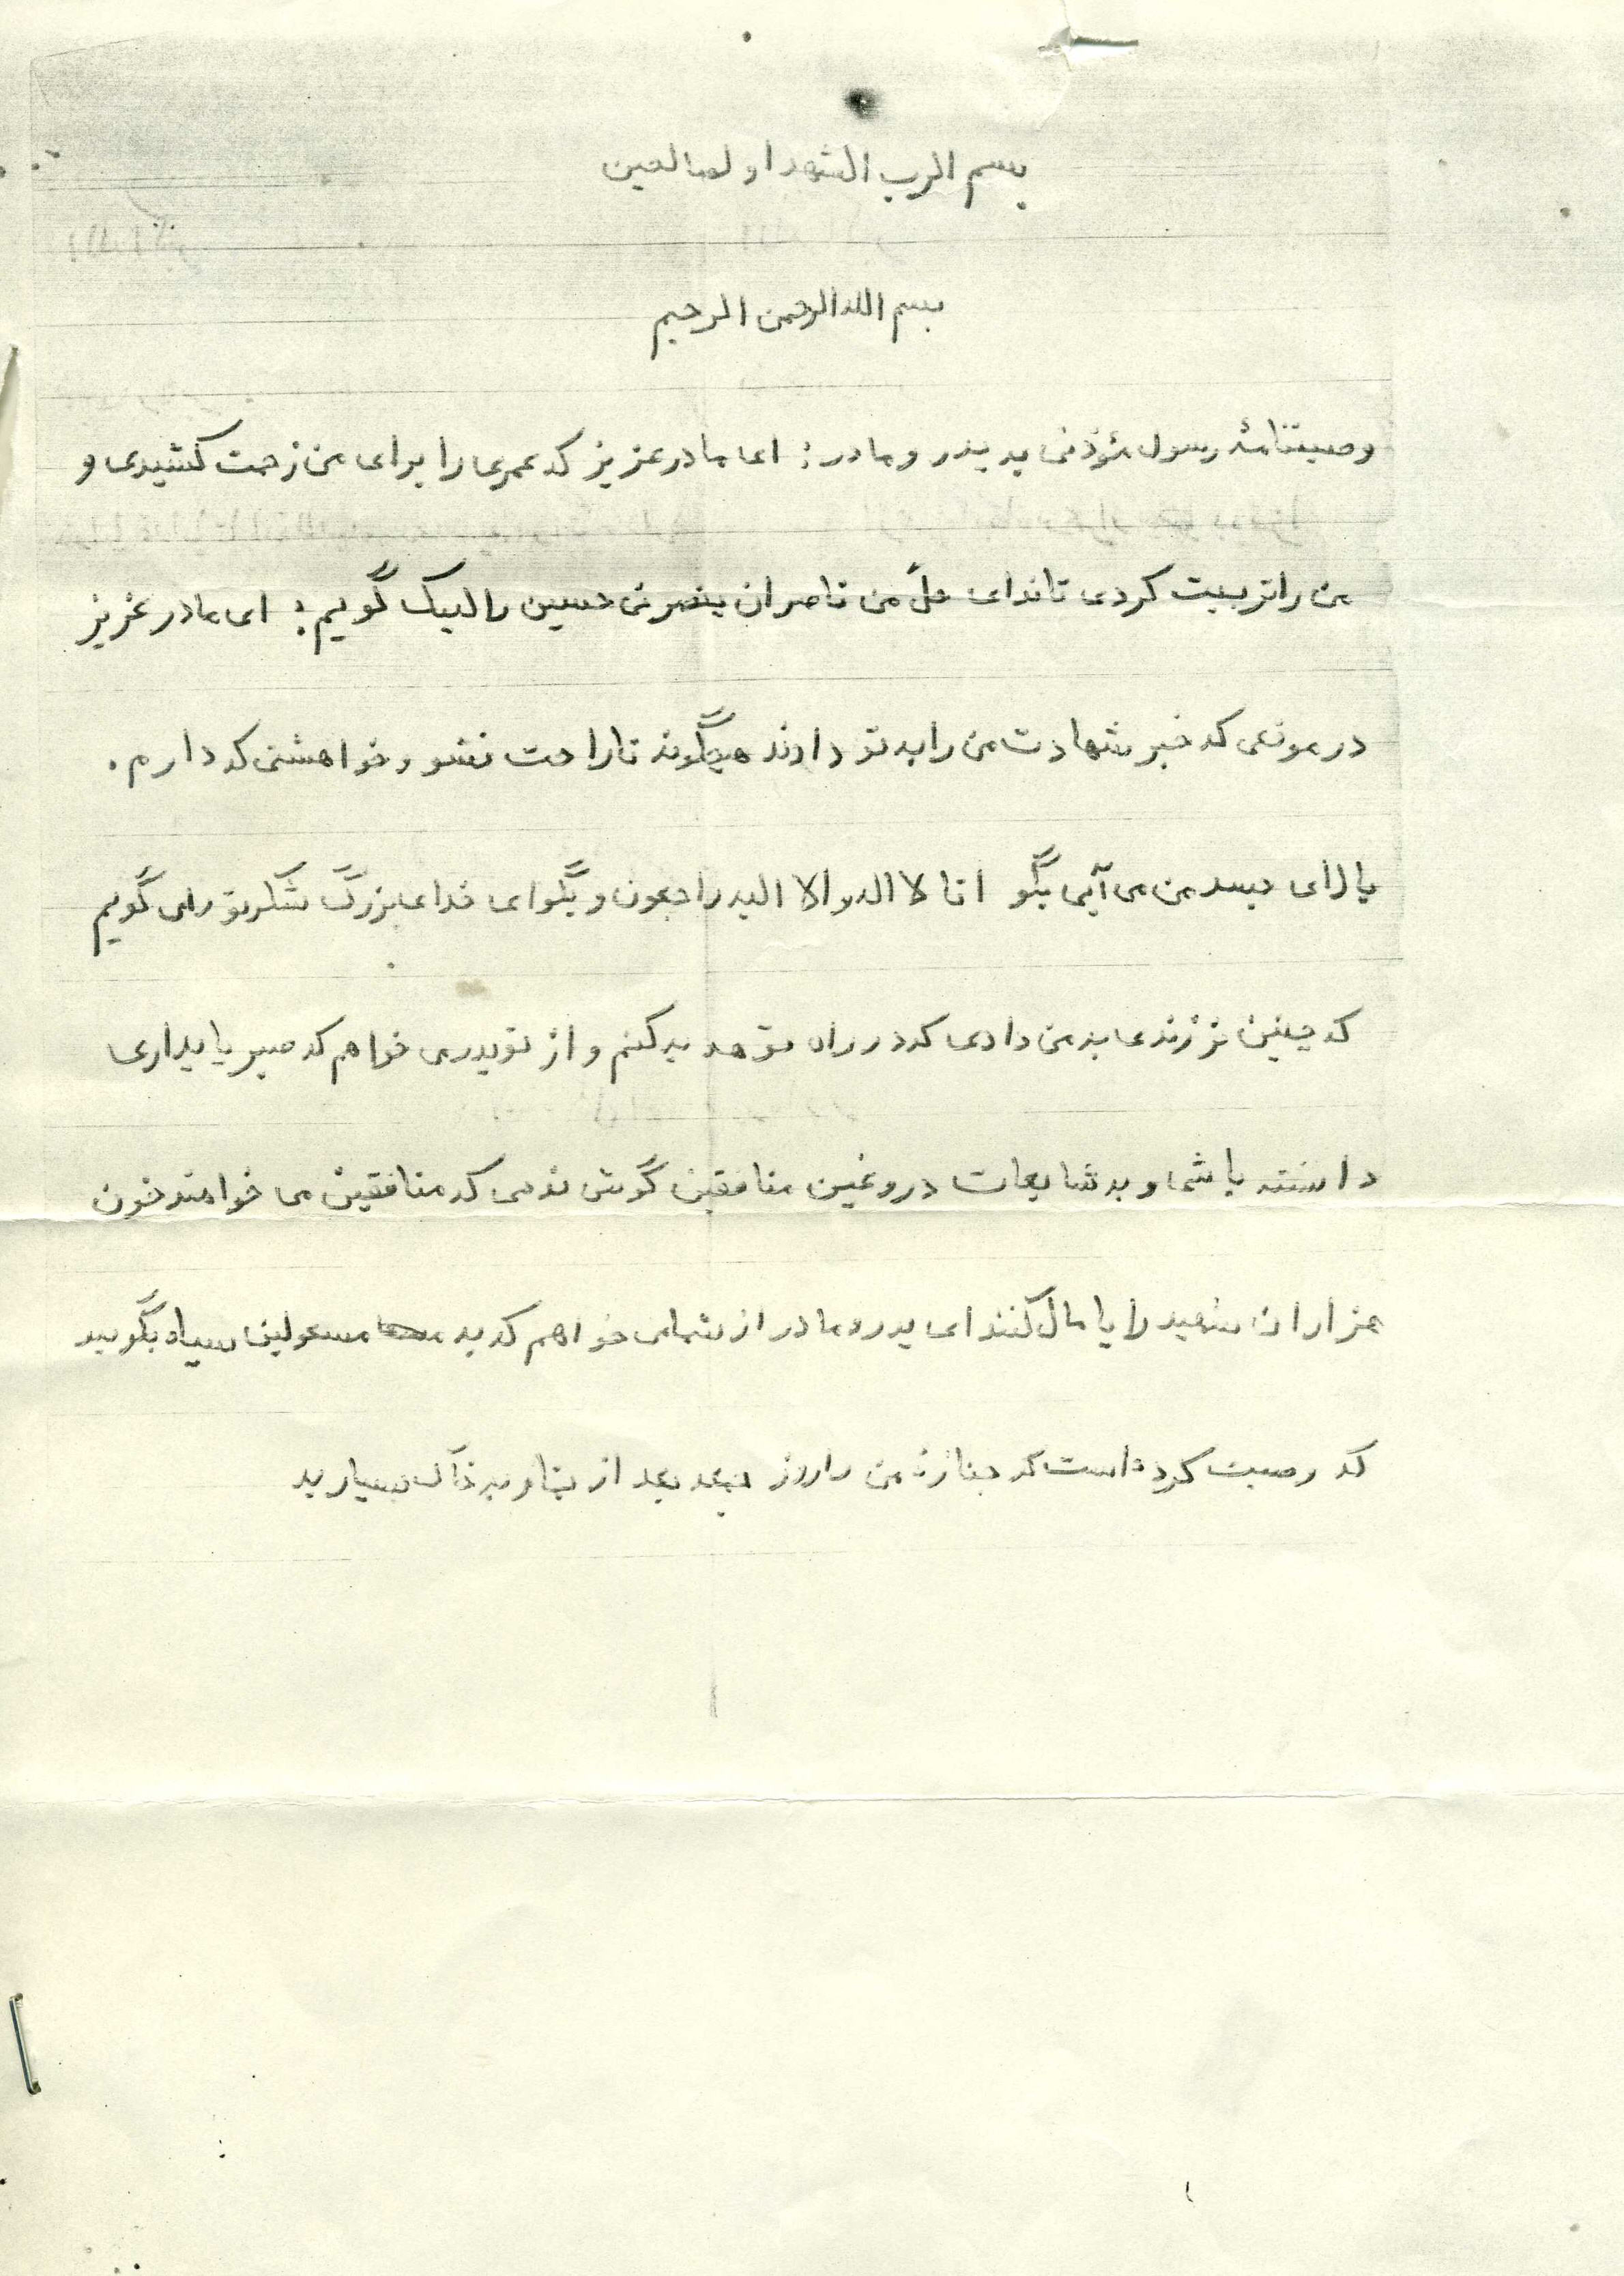 بسم الرب الشهدا و لصالحین
بسم الله الرحمن الرحیم
وصیتنامهٔ رسول مؤذنی به پدر و مادر: ای مادر عزیز که عمری را برای من زحمت کشیدی و
من را تربیت کردی تا ندای هلً من ناصران ینصرنی حسین را لبیک گویم: ای مادر عزیز
در موقعی که خبر شهادت من را به تو دادند هیچگونه ناراحت نشو و خواهشی که دارم.
بالای جسد من می آیی بگو انا لا الله و الا الیه راجعون و بگو ای خدای بزرگ شکر تو را می گویم
که چنین فرزندی به من دادی که در راه تو هدیه کنم و از تو پدر می خواهم که صبر پایداری
داشته باشی و به شایعات دروغین منافقین گوش ندهی که منافقین می خواهند خون
هزاران شهید را پا مال کنند ای پدر و مادر از شما می خواهم که به مسعولین سپاه بگویید
که وصیت کرده است که جنازهٔ من را روز جمعه بعد از نماز به خاک بسپارید